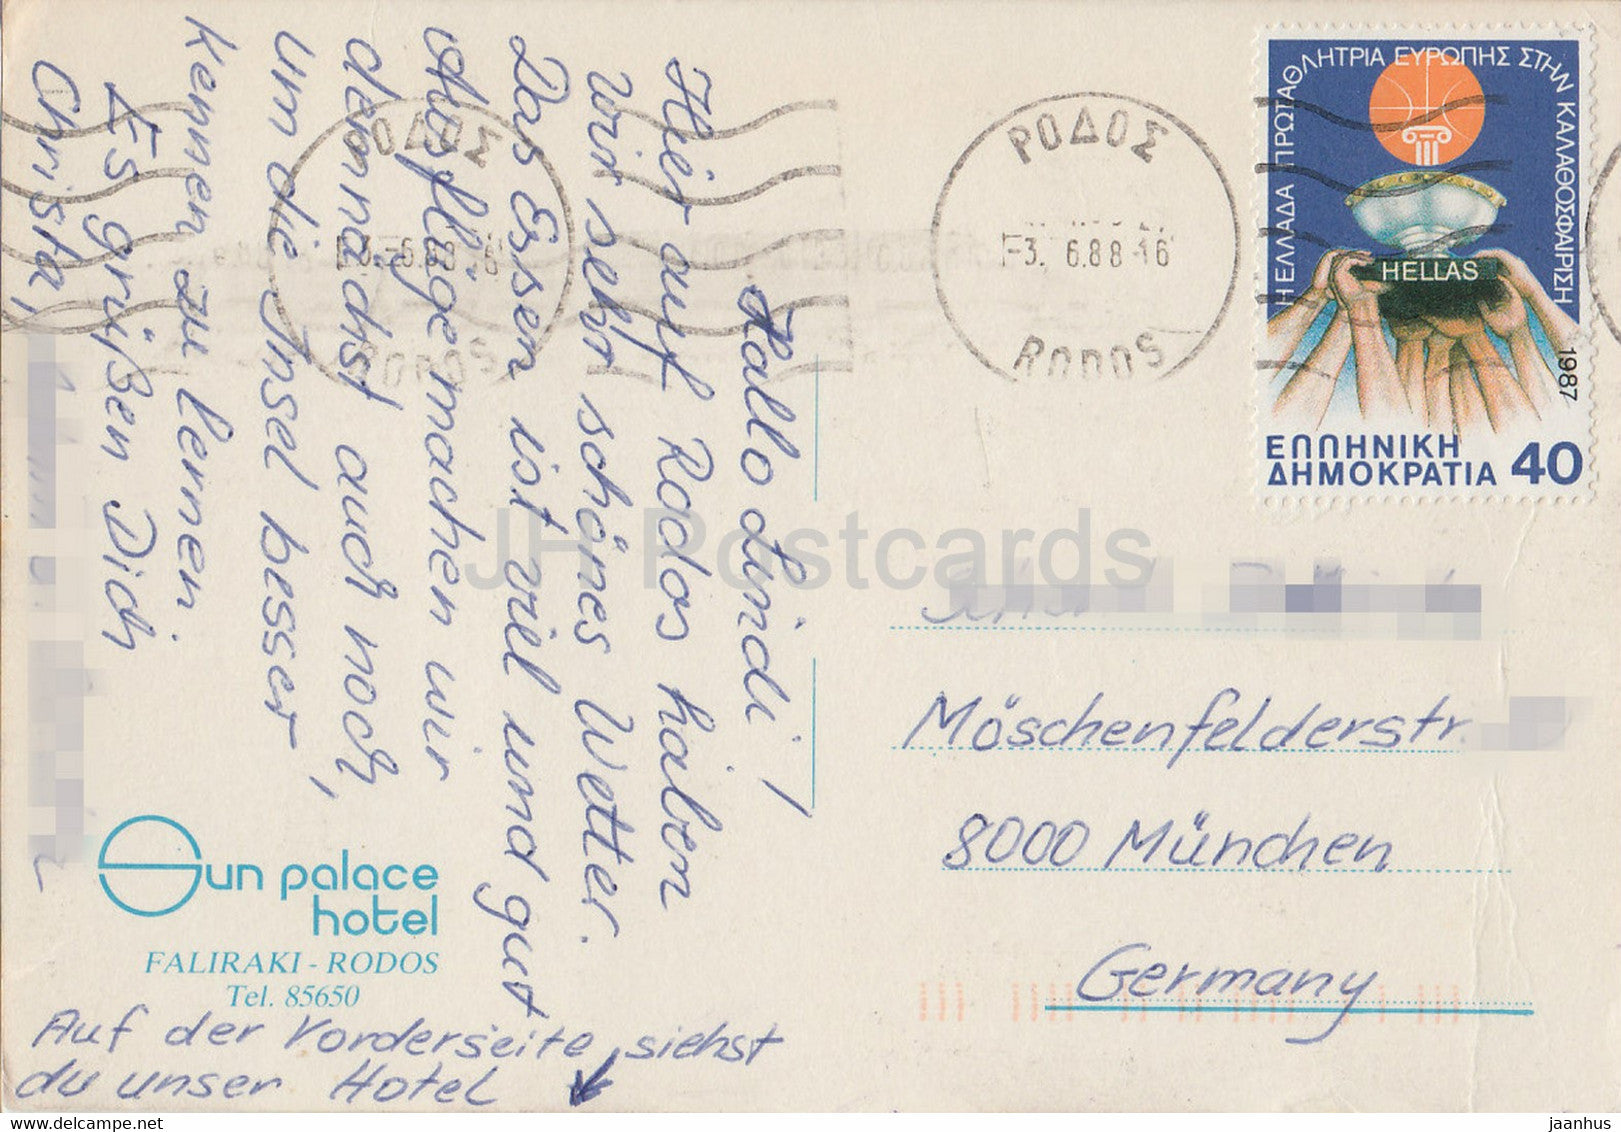 Hallo Lindi!
Hier auf Rodos haben
wir sehr schönes Wetter.
Das Essen ist viel und gut
Ausflüge machen wir
demnächst auch noch,
um die Insel besser
kennen zu lernen
Es grüßen Dich
Christa,
Sun palace
hotel
FALIRAKI - RODOS
Tel. 85650
Auf der Vorderseite siehst
du unser Hotel
ΡΟΔΟΣ
-3. 6.88 -16
RODOS
ΡΟΔΟΣ
-3.-6.88
RODOS
Η ΕΛΛΑΔΑ ΠΡΩΤΑΘΛΗΤΡΙΑ ΕΥΡΩΠΗΣ ΣΤΗΝ ΚΑΛΑΘΟΣΦΑΙΡΙΣΗ
HELLAS
1987
ΕΛΛΗΝΙΚΗ
ΔΗΜΟΚΡΑΤΙΑ 40
Möschenfelderstr.
8000 München
Germany
JH Postcards
jaanhus